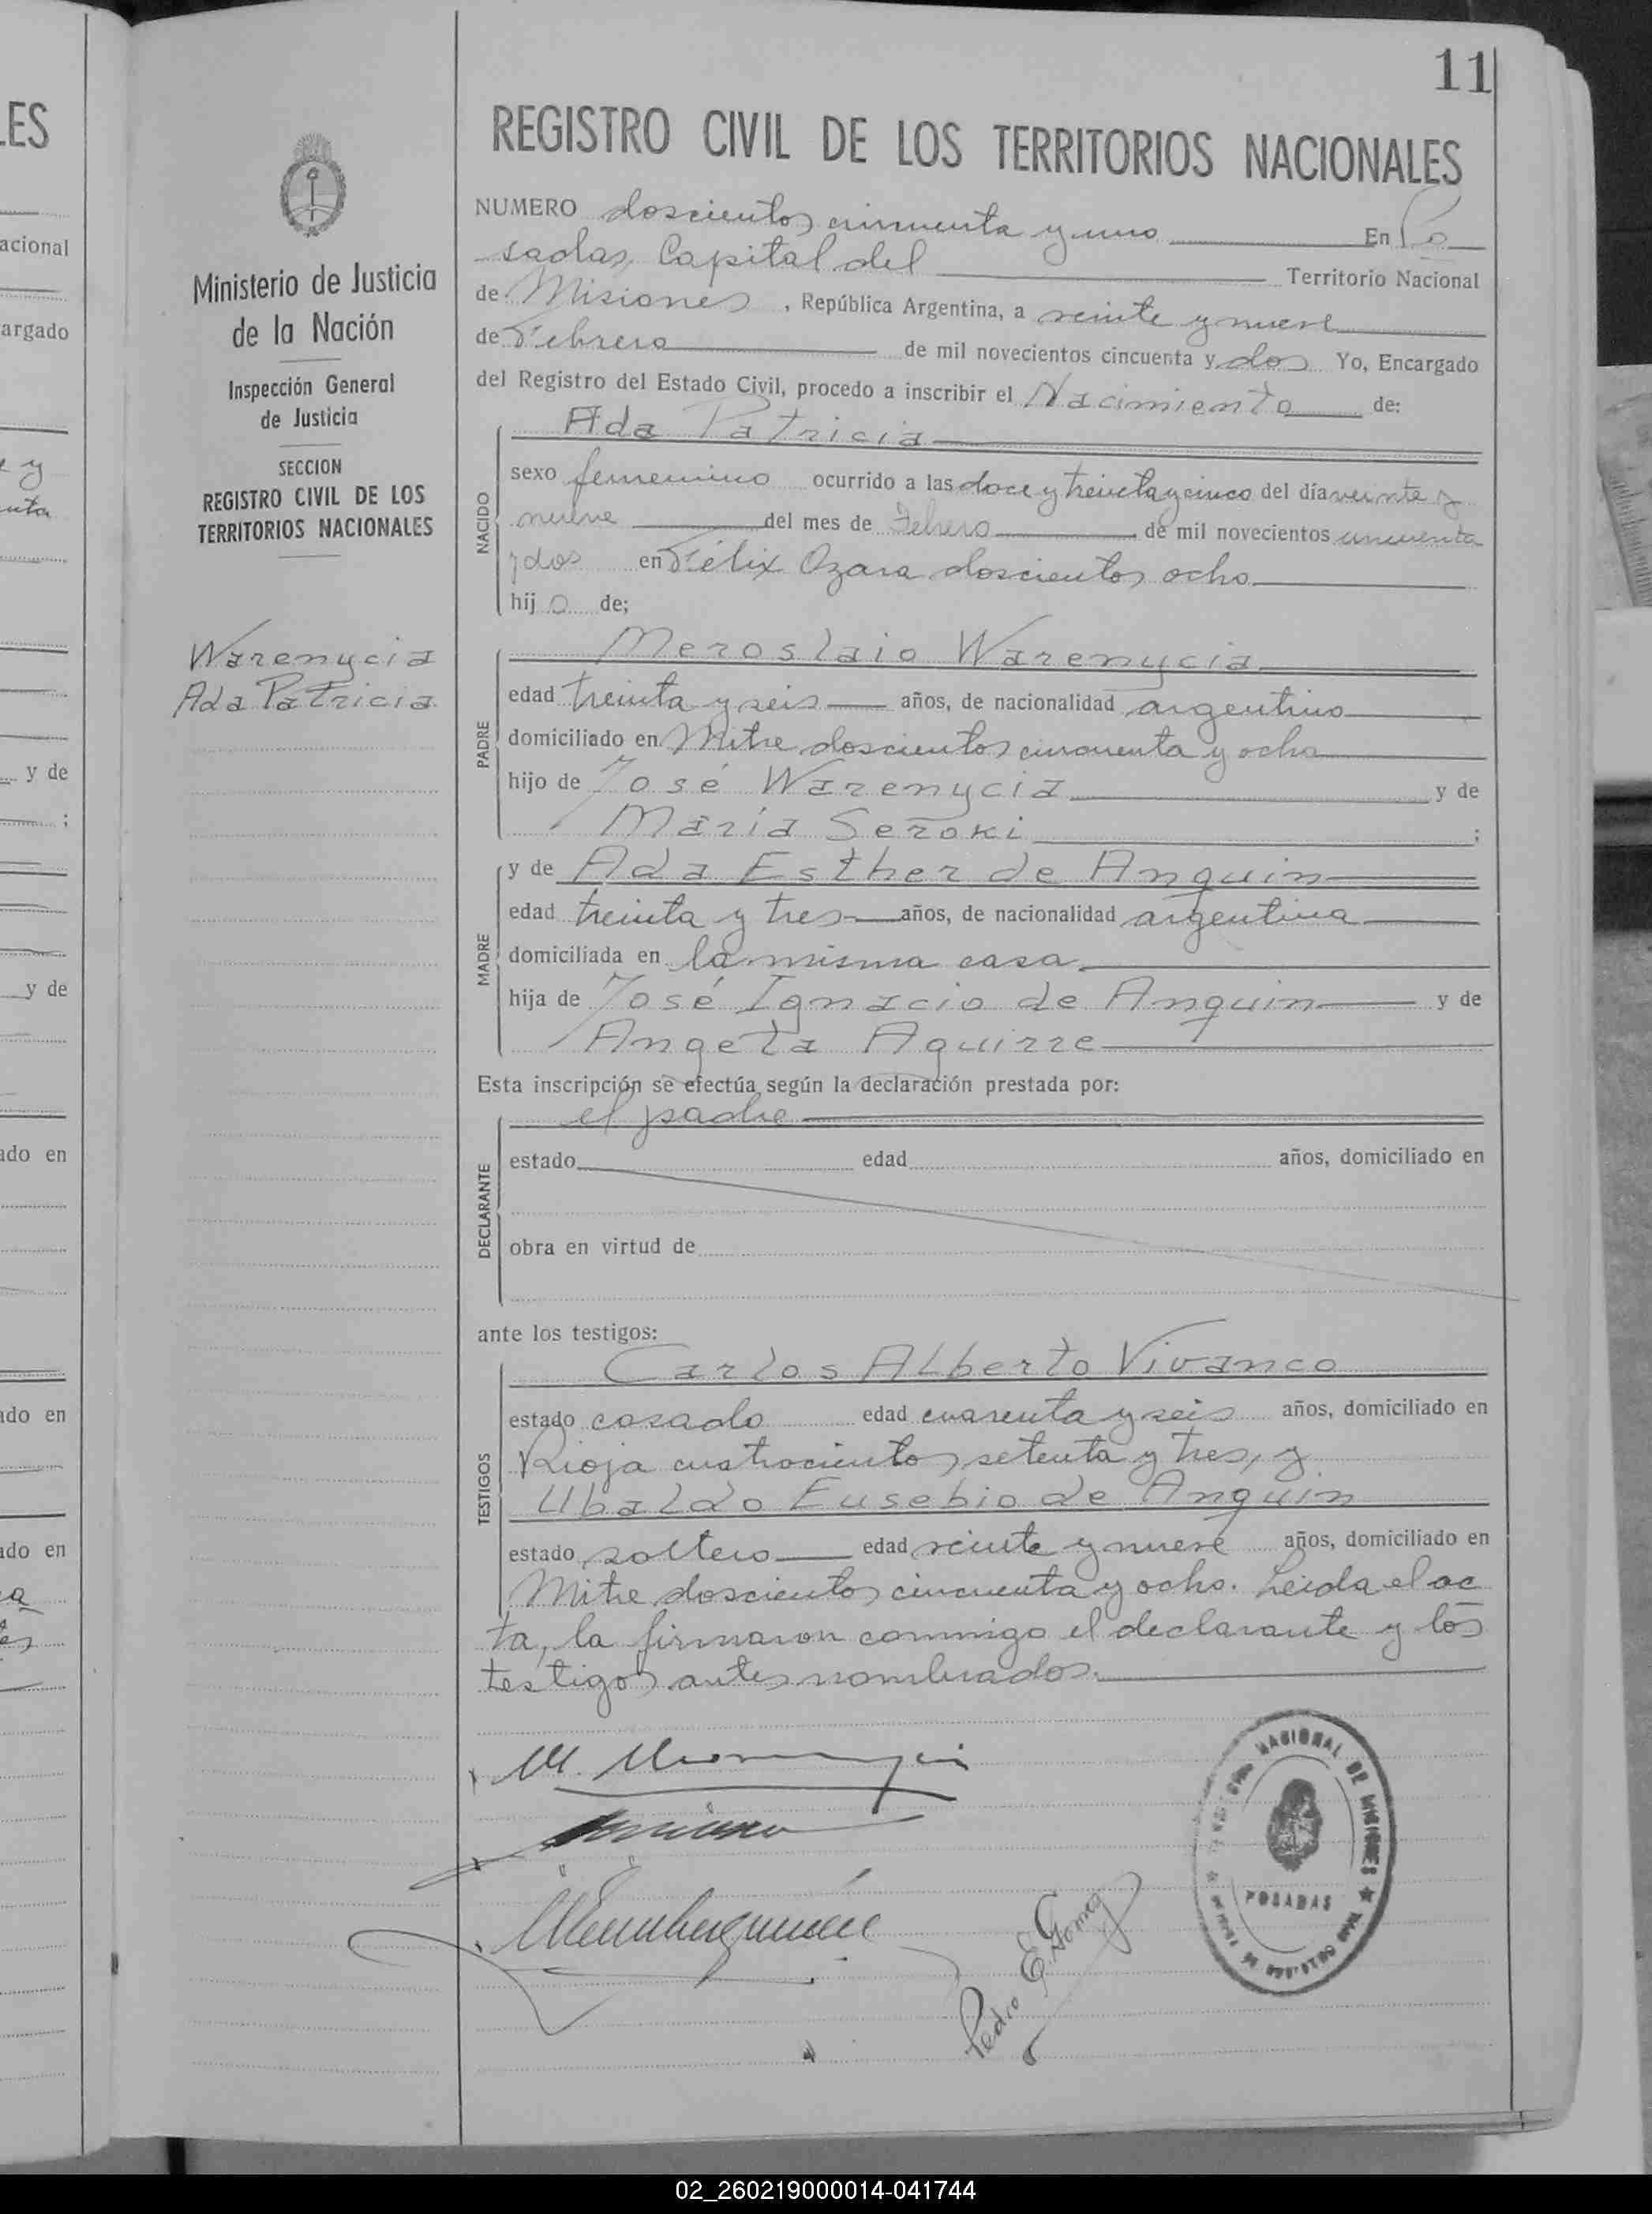 11
REGISTRO CIVIL DE LOS TERRITORIOS NACIONALES
NUMERO doscientos cincuenta y uno En Po
sadas, Capital del Territorio Nacional
de Misiones, República Argentina, a veinte y nueve
de Febrero de mil novecientos cincuenta y dos Yo, Encargado
del Registro del Estado Civil, procedo a inscribir el Nacimiento de:
Ada Patricia
NACIDO
sexo femenino ocurrido a las doce y treinta y cinco del día veinte y
nueve del mes de Febrero de mil novecientos cincuenta
y dos en Félix Ozara doscientos ocho
hij a de;
PADRE
Meroslaio Warenycia
edad treinta y seis años, de nacionalidad argentino
domiciliado en Mitre doscientos cincuenta y ocho
hijo de José Warenycia y de
María Seroki ;
MADRE
y de Ada Esther de Anquin
edad treinta y tres años, de nacionalidad argentina
domiciliada en la misma casa
hija de José Ignacio de Anquin y de
Angela Aguirre
Esta inscripción se efectúa según la declaración prestada por:
DECLARANTE
el padre
estado edad años, domiciliado en
obra en virtud de
ante los testigos:
TESTIGOS
Carlos Alberto Vivanco
estado casado edad cuarenta y seis años, domiciliado en
Rioja cuatrocientos setenta y tres, y
Ubaldo Eusebio de Anquin
estado soltero edad veinte y nueve años, domiciliado en
Mitre doscientos cincuenta y ocho. Leida el ac
ta, la firmaron conmigo el declarante y los
testigos antes nombrados.
Pedro E. Gomez
NACIONAL DE MISIONES
POSADAS
Ministerio de Justicia
de la Nación
Inspección General
de Justicia
SECCION
REGISTRO CIVIL DE LOS
TERRITORIOS NACIONALES
Warenycia
Ada Patricia
LES
acional
argado
y de
y de
ado en
ado en
ado en
02_260219000014-041744